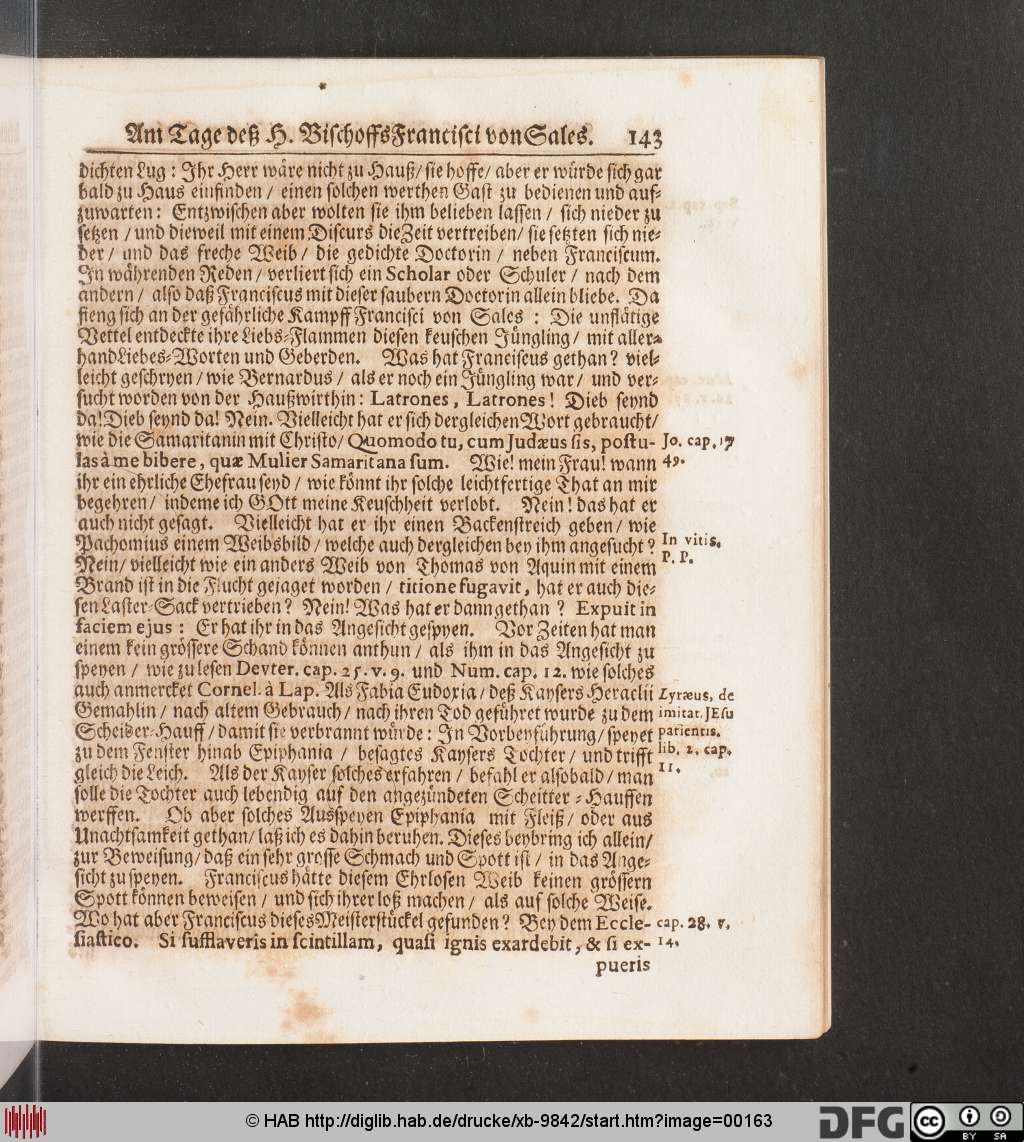 Am Tage deß H. Bischoffs Francisci von Sales. 143
dichten Lug: Ihr Herr wäre nicht zu Hauß/ sie hoffe/ aber er würde sich gar
bald zu Haus einfinden / einen solchen werthen Gast zu bedienen und auf-
zuwarten: Entzwischen aber wolten sie ihm belieben lassen / sich nieder zu
setzen / und dieweil mit einem Discurs die Zeit vertreiben/ sie setzten sich nie-
der / und das freche Weib / die gedichte Doctorin / neben Franciscum.
In währenden Reden / verliert sich ein Scholar oder Schuler / nach dem
andern / also daß Franciscus mit dieser saubern Doctorin allein bliebe. Da
fieng sich an der gefährliche Kampff Francisci von Sales : Die unflätige
Vettel entdeckte ihre Liebs-Flammen diesen keuschen Jüngling / mit aller-
hand Liebes-Worten und Geberden. Was hat Franciscus gethan? viel-
leicht geschryen / wie Bernardus / als er noch ein Jüngling war / und ver-
sucht worden von der Haußwirthin: Latrones, Latrones! Dieb seynd
da! Dieb seynd da! Nein. Vielleicht hat er sich dergleichen Wort gebraucht/
wie die Samaritanin mit Christo/ Quomodo tu, cum Judæus sis, postu-
las à me bibere, quæ Mulier Samaritana sum. Wie! mein Frau! wann
ihr ein ehrliche Ehefrau seyd / wie könnt ihr solche leichtfertige That an mir
begehren / indeme ich GOtt meine Keuschheit verlobt. Nein! das hat er
auch nicht gesagt. Vielleicht hat er ihr einen Backenstreich geben / wie
Pachomius einem Weibsbild / welche auch dergleichen bey ihm angesucht?
Nein/ vielleicht wie ein anders Weib von Thomas von Aquin mit einem
Brand ist in die Flucht gejaget worden / titione fugavit, hat er auch die-
sen Laster-Sack vertrieben? Nein! Was hat er dann gethan ? Expuit in
faciem ejus: Er hat ihr in das Angesicht gespyen. Vor Zeiten hat man
einem kein grössere Schand können anthun / als ihm in das Angesicht zu
speyen / wie zu lesen Devter. cap. 25. v. 9. und Num. cap. 12. wie solches
auch anmercket Cornel. à Lap. Als Fabia Eudoxia / deß Kaysers Heraclii
Gemahlin / nach altem Gebrauch / nach ihren Tod geführet wurde zu dem
Scheider-Hauff / damit sie verbrannt würde: In Vorbeyführung / speyet
zu dem Fenster hinab Epiphania / besagtes Kaysers Tochter / und trifft
gleich die Leich. Als der Kayser solches erfahren / befahl er alsobald / man
solle die Tochter auch lebendig auf den angezündeten Scheitter-Hauffen
werffen. Ob aber solches Ausspeyen Epiphania mit Fleiß / oder aus
Unachtsamkeit gethan / laß ich es dahin beruhen. Dieses beybring ich allein/
zur Beweisung / daß ein sehr grosse Schmach und Spott ist / in das Ange-
sicht zu speyen. Franciscus hätte diesem Ehrlosen Weib keinen grössern
Spott können beweisen / und sich ihrer loß machen / als auf solche Weise.
Wo hat aber Franciscus dieses Meisterstückel gefunden? Bey dem Eccle-
siastico. Si sufflaveris in scintillam, quasi ignis exardebit, & si ex-
pueris
Jo. cap. 17
49.
In vitis.
P. P.
Lyræus, de
imitat. JEsu
patientis.
lib. 2. cap.
11.
cap. 28. v.
14.
© HAB http://diglib.hab.de/drucke/xb-9842/start.htm?image=00163
DFG
cc
BY SA